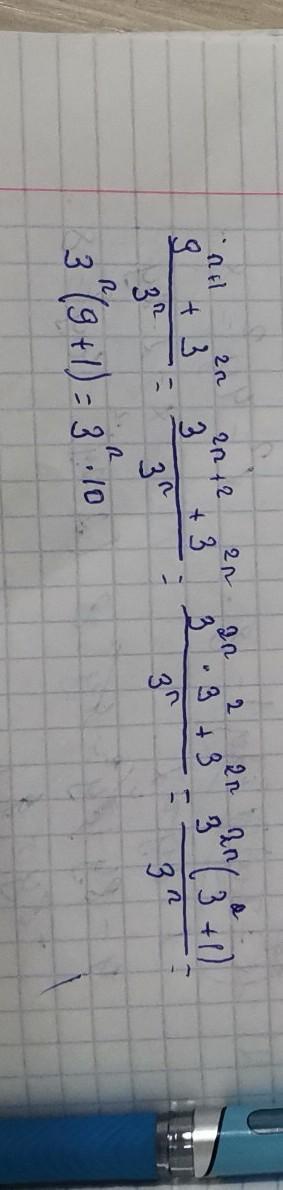 9^{n+1} + 3^{2n} / 3^n = 3^{2n+2} + 3^{2n} / 3^n = 3^{2n} · 3^2 + 3^{2n} / 3^n = 3^{2n}(3^2 + 1) / 3^n =
3^n (9 + 1) = 3^n · 10